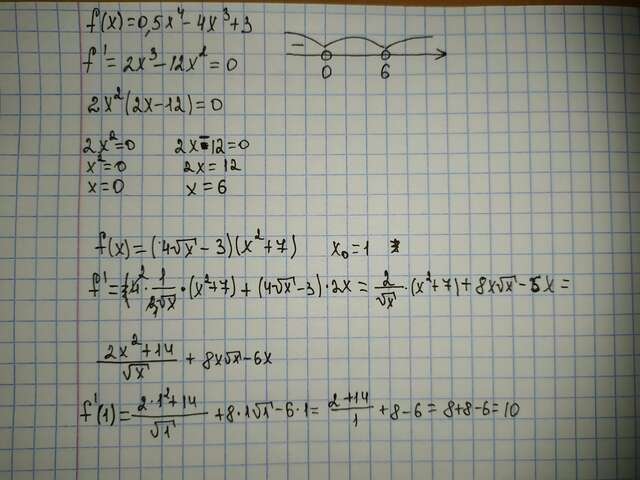 f(x)=0,5x⁴-4x³+3
f'=2x³-12x²=0
2x²(2x-12)=0
2x²=0 2x-12=0
x²=0 2x=12
x=0 x=6
−
0 6
f(x)=(4√x-3)(x²+7) x₀=1
f'=4²·1/(2√x)·(x²+7)+(4√x-3)·2x=2/√x·(x²+7)+8x√x-5x=
(2x²+14)/√x+8x√x-6x
f'(1)=(2·1²+14)/√1+8·1√1-6·1=(2+14)/1+8-6=8+8-6=10